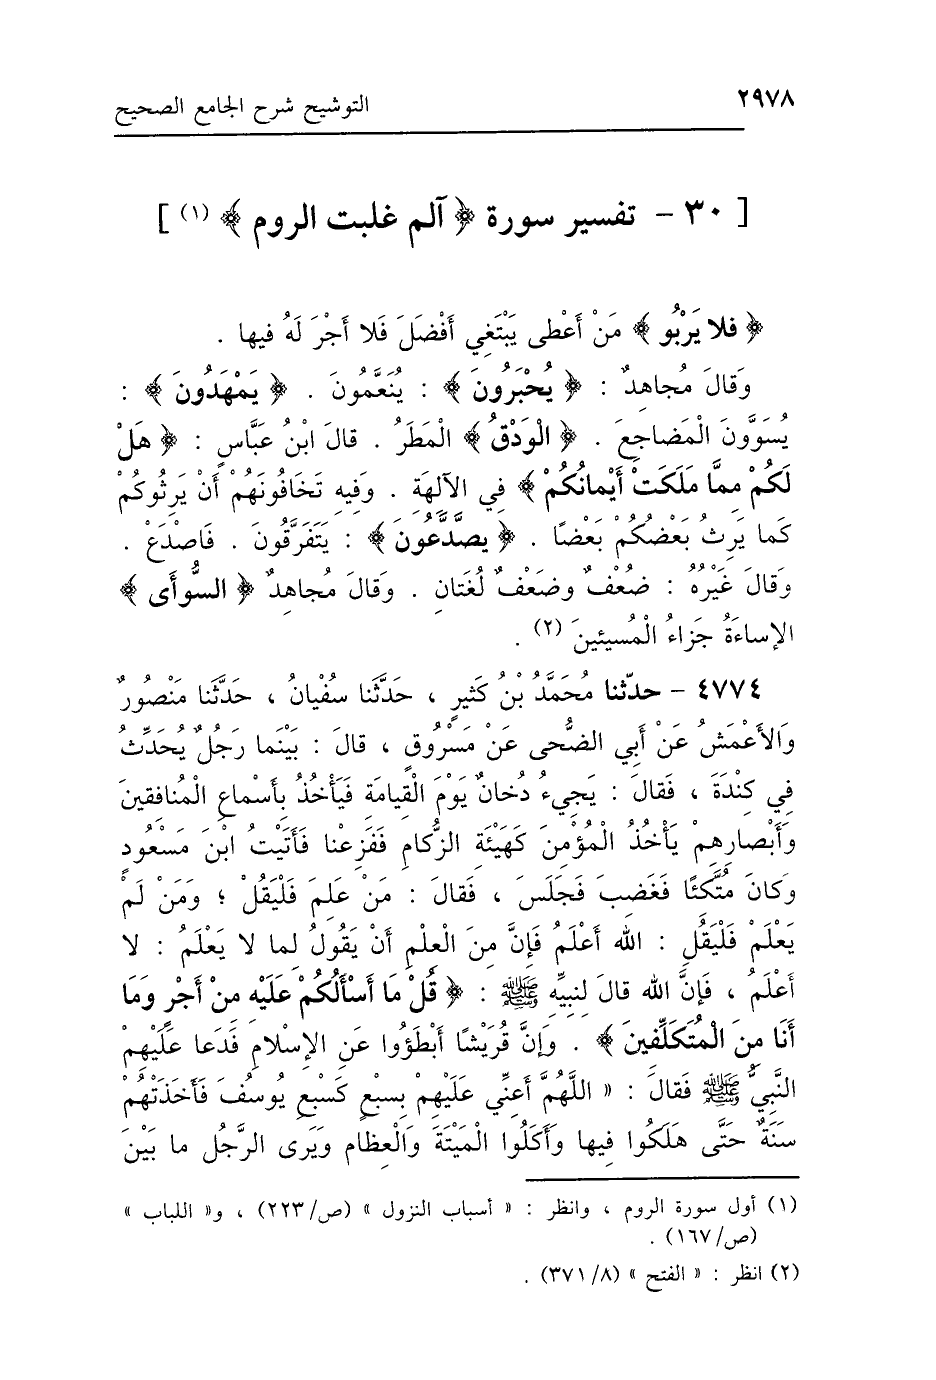 ٢٩٧٨ التوشيح شرح الجامع الصحيح
[ ٣٠ - تفسير سورة ﴿ آلم غلبت الروم ﴾ (١) ]
﴿ فلا يَرْبُو ﴾ مَنْ أَعْطى يَبْتَغِي أَفْضَلَ فَلا أَجْرَ لَهُ فيها .
وَقالَ مُجاهِدٌ : ﴿ يُحْبَرُونَ ﴾ : يُنَعَّمُونَ . ﴿ يَمْهَدُونَ ﴾ :
يُسَوَّونَ الْمَضاجِعَ . ﴿ الْوَدْقُ ﴾ الْمَطَرُ . قالَ ابْنُ عَبَّاسٍ : ﴿ هَلْ
لَكُمْ مِمَّا مَلَكَتْ أَيْمانُكُمْ ﴾ فِي الآلِهَةِ . وَفِيهِ تَخَافُونَهُمْ أَنْ يَرِثُوكُمْ
كَما يَرِثُ بَعْضُكُمْ بَعْضًا . ﴿ يصَّدَّعُونَ ﴾ : يَتَفَرَّقُونَ . فَاصْدَعْ .
وَقالَ غَيْرُهُ : ضُعْفٌ وضَعْفٌ لُغَتانِ . وَقالَ مُجاهِدٌ ﴿ السُّوأَى ﴾
الإساءَةُ جَزاءُ الْمُسيئينَ (٢) .
٤٧٧٤ - حدّثنا مُحَمَّدُ بْنُ كَثيرٍ ، حَدَّثَنا سُفْيانُ ، حَدَّثَنا مَنْصُورٌ
وَالأَعْمَشُ عَنْ أَبي الضُّحى عَنْ مَسْرُوقٍ ، قالَ : بَيْنَما رَجُلٌ يُحَدِّثُ
فِي كِنْدَةَ ، فَقالَ : يَجِيءُ دُخانٌ يَوْمَ الْقِيامَةِ فَيَأْخُذُ بِأَسْماعِ الْمُنافِقينَ
وَأَبْصارِهِمْ يَأْخُذُ الْمُؤْمِنَ كَهَيْئَةِ الزُّكامِ فَفَزِعْنا فَأَتَيْتُ ابْنَ مَسْعُودٍ
وَكانَ مُتَّكئًا فَغَضِبَ فَجَلَسَ ، فَقالَ : مَنْ عَلِمَ فَلْيَقُلْ ؛ وَمَنْ لَمْ
يَعْلَمْ فَلْيَقُلِ : الله أَعْلَمُ فَإِنَّ مِنَ الْعِلْمِ أَنْ يَقُولُ لما لا يَعْلَمُ : لا
أَعْلَمُ ، فَإِنَّ الله قالَ لنبيِّهِ ﷺ : ﴿ قُلْ مَا أَسْأَلُكُمْ عَلَيْهِ مِنْ أَجْرٍ وَمَا
أَنَا مِنَ الْمُتَكَلِّفينَ ﴾ . وَإِنَّ قُرَيْشًا أَبْطَؤُوا عَنِ الإِسْلامِ فَدَعا عَلَيْهِم
النَّبيُّ ﷺ فَقالَ : « اللَّهُمَّ أَعِنِّي عَلَيْهِمْ بِسَبْعٍ كَسَبْعِ يُوسُفَ فَأَخَذَتْهُمْ
سَنَةٌ حَتَّى هَلَكُوا فيها وَأَكَلُوا الْمَيْتَةَ وَالْعِظَام وَيَرى الرَّجُل ما بَيْنَ
(١) أول سورة الروم ، وانظر : « أسباب النزول » (ص/٢٢٣) ، و« اللباب »
(ص/١٦٧) .
(٢) انظر : « الفتح » (٨/ ٣٧١) .